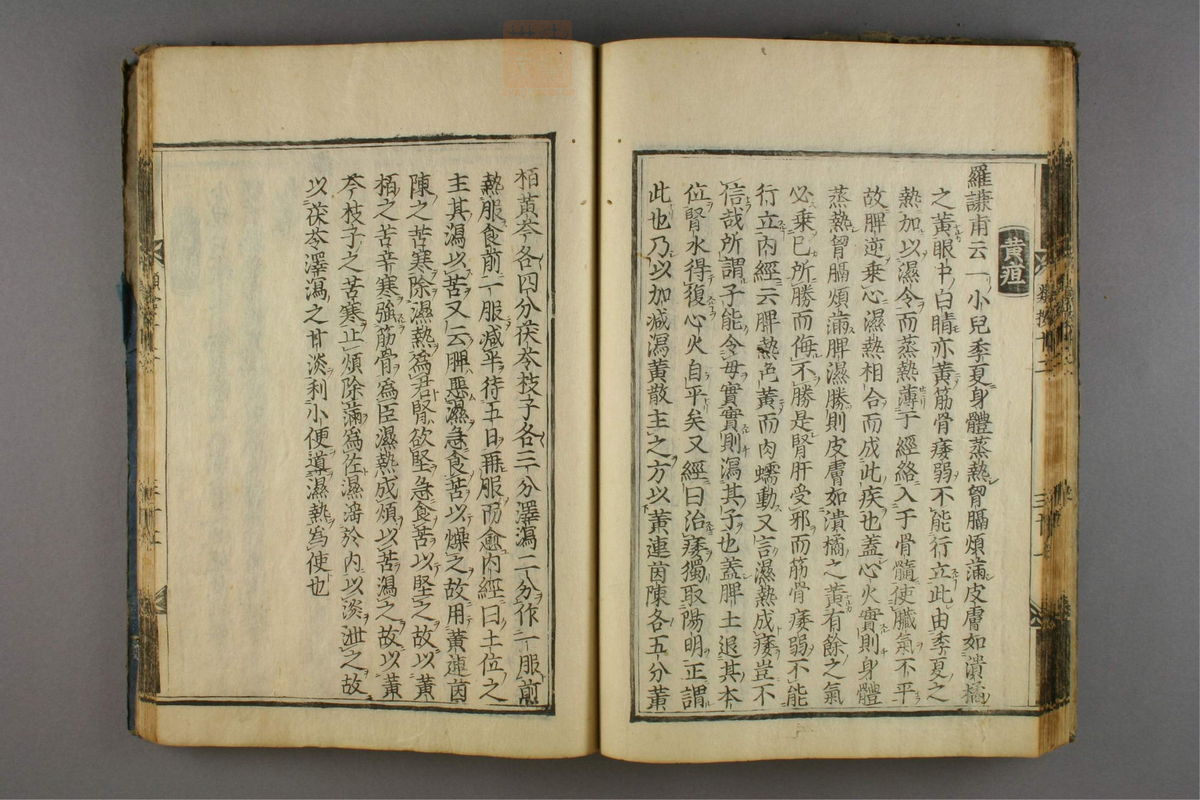 黄疸
羅謙甫云一小兒季夏身體蒸熱胷膈煩滿皮膚如潰橘
之黄眼中白睛亦黄筋骨痿弱不能行立此由季夏之
熱加以濕令而蒸熱薄于經絡入于骨髓使臟氣不平
故脾逆乗心濕熱相合而成此疾也蓋心火實則身體
蒸熱胷膈煩滿脾濕勝則皮膚如潰橘之黄有餘之氣
必乗已所勝而侮不勝是腎肝受邪而筋骨痿弱不能
行立内經云脾熱色黄而肉蠕動又言濕熱成痿豈不
信哉所謂子能令母實實則瀉其子也蓋脾土退其本
位腎水得復心火自平矣又經曰治痿獨取陽明正謂
此也乃以加减瀉黄散主之方以黄連茵陳各五分黄
栢黄芩各四分茯苓枝子各三分澤瀉二分作一服煎
熱服食前一服减半待五日再服而愈内經曰土位之
主其瀉以苦又云脾惡濕急食苦以燥之故用黄連茵
陳之苦寒除濕熱爲君腎欲堅急食苦以堅之故以黄
栢之苦辛寒強筋骨爲臣濕熱成煩以苦瀉之故以黄
芩枝子之苦寒止煩除滿爲佐濕淫於内以淡泄之故
以茯苓澤瀉之甘淡利小便導濕熱為使也